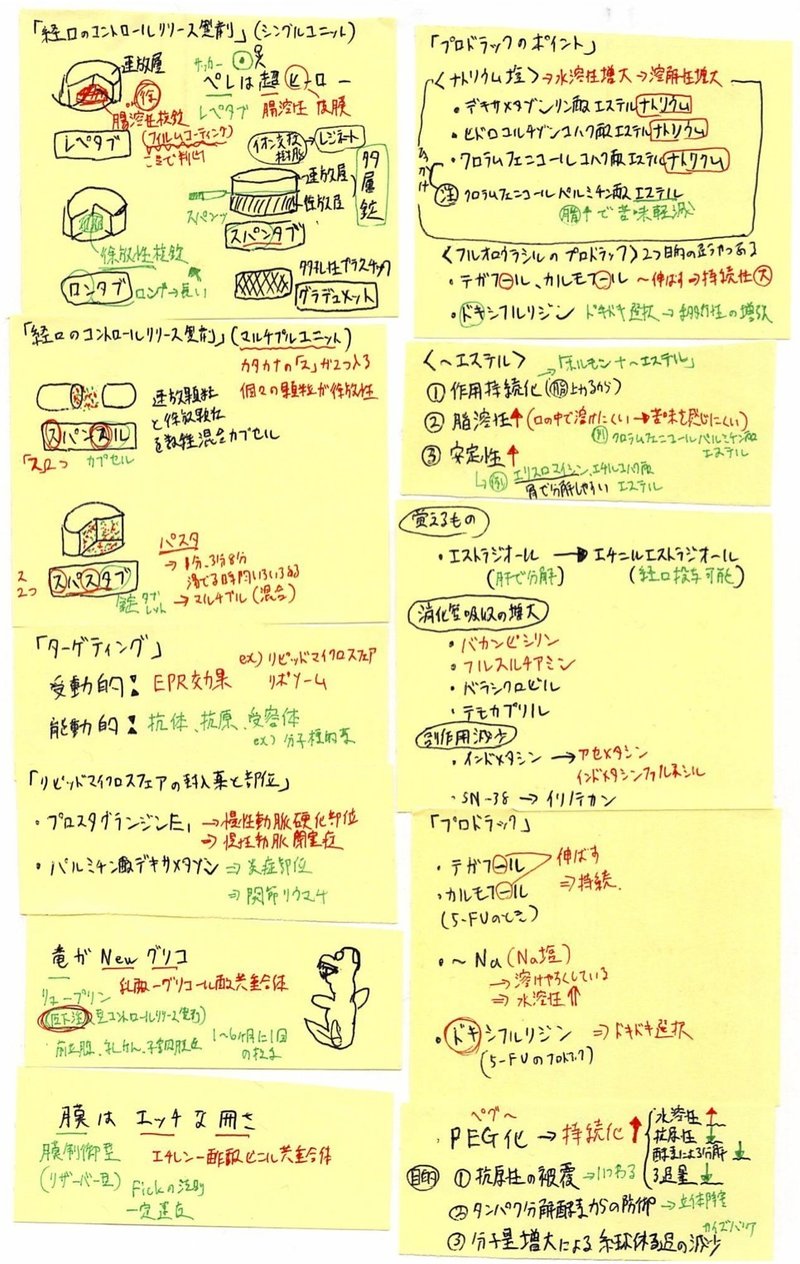 「経口のコントロールリリース製剤」(シングルユニット)
速放層
徐
腸溶性核錠
(フィルムコーティング)
ここで判断
レペタブ
サッカー
ペレは超ヒーロー
レペタブ 腸溶性 皮膜
イオン交換樹脂 → レジネート
速放層
徐放層
多層錠
スパンツ
スパンタブ
徐放性核錠
ロンタブ ロング→長い
多孔性プラスチック
グラデュメット
「経口のコントロールリリース製剤」(マルチプルユニット)
カタカナの「ス」が2つ入る
個々の顆粒が徐放性
速放顆粒
と徐放顆粒
を数種混合カプセル
スパンスル
「ス」2つ カプセル
パスタ
→1分、3分、8分
湯でる時間いろいろある
→マルチプル(混合)
ス
2つ
スパスタブ
錠 タブレット
「ターゲティング」
受動的: EPR効果
ex) リピッドマイクロスフェア
リポソーム
能動的: 抗体、抗原、受容体
ex) 分子標的薬
「リピッドマイクロスフェアの封入薬と部位」
・プロスタグランジンE1 →慢性動脈硬化部位
⇒慢性動脈閉塞症
・パルミチン酸デキサメタゾン ⇒炎症部位
⇒関節リウマチ
竜が New グリコ
リュープリン 乳酸-グリコール酸共重合体
(皮下注)(型コントロールリリース製剤)
前立腺、乳がん、子宮内膜症
1〜6ヶ月に1回
の投与
膜は エッチな 囲さ
膜制御型 エチレン-酢酸ビニル共重合体
(リザーバー型)
Fickの法則
一定速度
「プロドラックのポイント」
〈ナトリウム塩〉→水溶性増大→溶解性増大
・デキサメタゾンリン酸エステルナトリウム
・ヒドロコルチゾンコハク酸エステルナトリウム
・クロラムフェニコールコハク酸エステルナトリウム
ひっかけ
注 クロラムフェニコールパルミチン酸エステル
脂↑で苦味軽減
〈フルオロウラシルのプロドラック〉2つ目的の違うやつある
・テガフール、カルモフール 〜伸ばす⇒持続性大
・ドキシフルリジン ドキドキ選択→選択性の増大
〈〜エステル〉
「ホルモン+〜エステル」
① 作用持続化 (脂上がるから)
② 脂溶性↑(口の中で溶けにくい→苦味を感じにくい)
例 クロラムフェニコールパルミチン酸
エステル
③ 安定性↑
例 エリスロマイシンエチルコハク酸
エステル
胃で分解しやすい
覚えるもの
・エストラジオール → エチニルエストラジオール
(肝で分解) (経口投与可能)
消化管吸収の増大
・バカンピシリン
・フルスルチアミン
・バラシクロビル
・テモカプリル
副作用減少
・インドメタシン → アセメタシン
インドメタシンファルネシル
・SN-38 → イリノテカン
「プロドラック」
・テガフール
カルモフール
伸ばす
⇒持続
(5-FUのとき)
・〜Na (Na塩)
→溶けやすくしている
⇒水溶性↑
・ドキシフルリジン ⇒ドキドキ選択
(5-FUのプロドラック)
ペグ〜
・PEG化 → 持続化↑
水溶性↑
抗原性↓
酵素による分解↓
ろ過量↓
目的 ① 抗原性の被覆 →いつわる
② タンパク分解酵素からの防御 →立体障害
カイズバック
③ 分子量増大による糸球体ろ過の減少